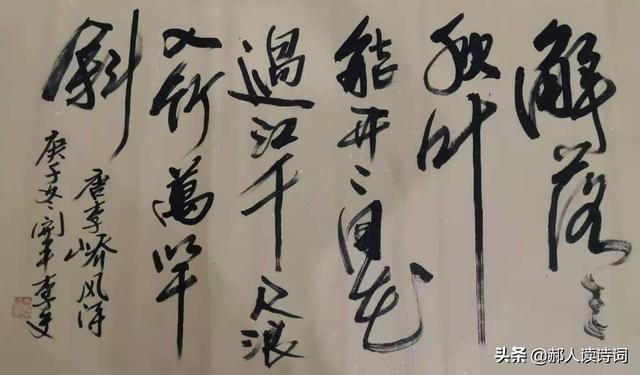 解落三
秋叶
能开二月花
過江千尺浪
入竹萬竿
斜
唐李峤风诗
庚子冬
头条 @郝人读诗词